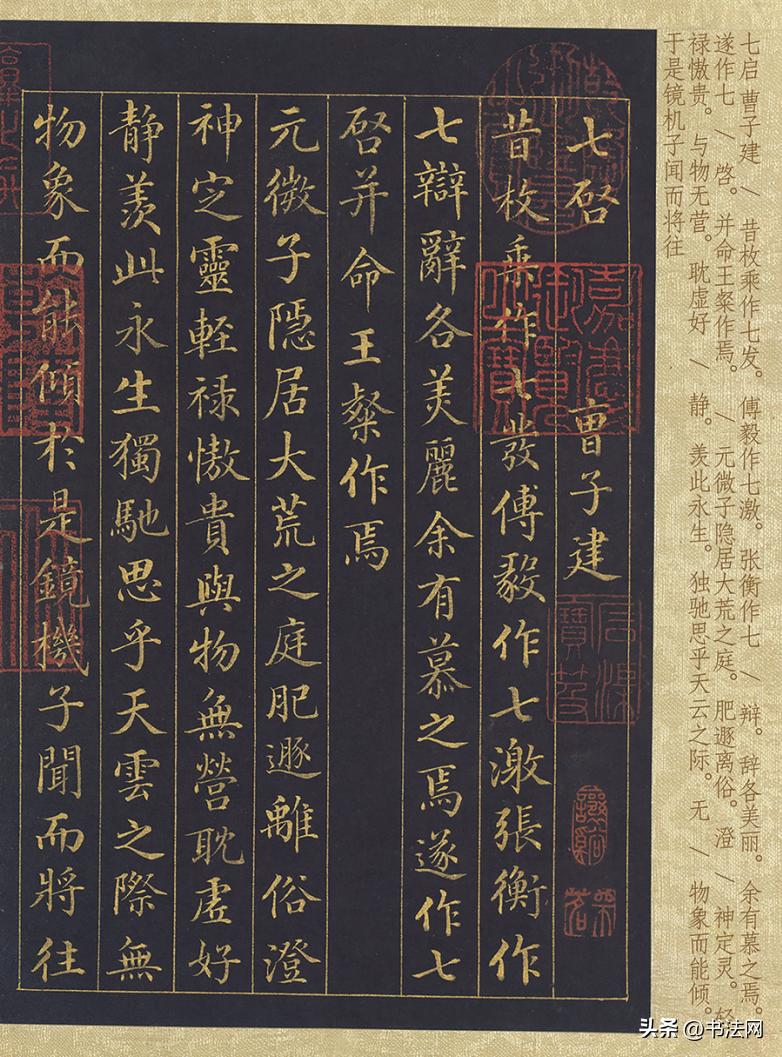 七启 曹子建 / 昔枚乘作七发。 傅毅作七激。张衡作七 / 辩。 辞各美丽。 余有慕之焉。
遂作七 / 啓。 并命王粲作焉。 / 元微子隐居大荒之庭。 肥遯离俗。 澄 / 神定灵。 轻
禄慠贵。 与物无营。 耽虚好 / 静。 羡此永生。 独驰思乎天云之际。 无 / 物象而能倾。
于是镜机子闻而将往
七啓 曹子建
昔枚乘作七發傅毅作七激張衡作
七辯辭各美麗余有慕之焉遂作七
啓并命王粲作焉
元微子隱居大荒之庭肥遯離俗澄
神定靈輕禄慠貴與物無營耽虛好
静羡此永生獨馳思乎天雲之際無
物象而能傾於是鏡機子聞而將往
头条 @书法网